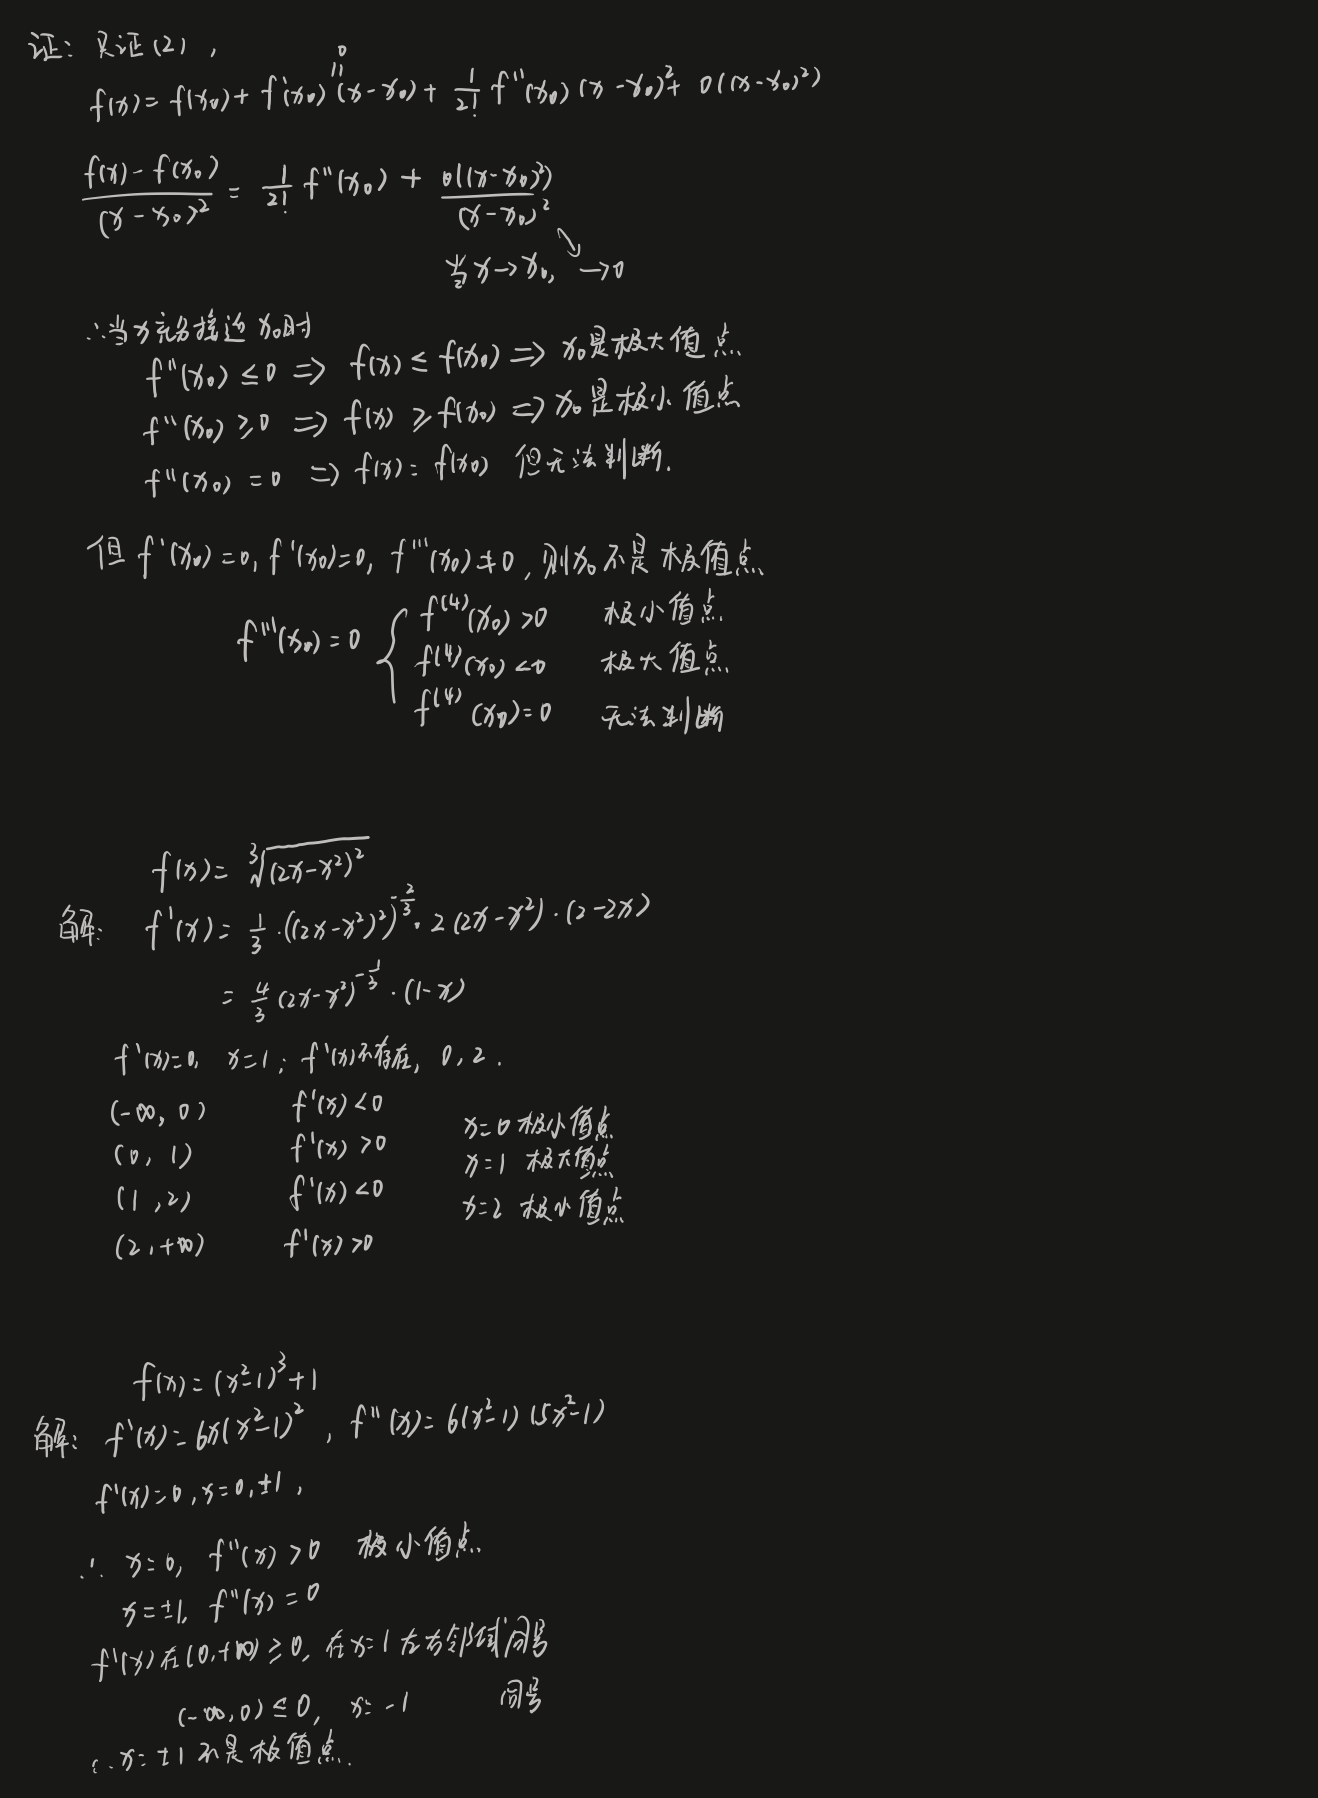 证: 只证(2),
0
f(x)=f(x₀)+f'(x₀)(x-x₀)+1/2! f''(x₀)(x-x₀)²+o((x-x₀)²)
(f(x)-f(x₀))/(x-x₀)² = 1/2! f''(x₀) + o((x-x₀)²)/(x-x₀)²
当x→x₀, →0
∴当x充分接近x₀时
f''(x₀)≤0 ⇒ f(x)≤f(x₀) ⇒ x₀是极大值点
f''(x₀)≥0 ⇒ f(x)≥f(x₀) ⇒ x₀是极小值点
f''(x₀)=0 ⇒ f(x)=f(x₀) 但无法判断.
但 f'(x₀)=0, f'(x₀)=0, f'''(x₀)≠0, 则x₀不是极值点
f'''(x₀)=0 { f⁽⁴⁾(x₀)>0 极小值点
f⁽⁴⁾(x₀)<0 极大值点
f⁽⁴⁾(x₀)=0 无法判断
f(x)=∛((2x-x²)²)
解: f'(x)=1/3·((2x-x²)²)^(-2/3)·2(2x-x²)·(2-2x)
=4/3(2x-x²)^(-1/3)·(1-x)
f'(x)=0, x=1; f'(x)不存在, 0,2.
(-∞,0) f'(x)<0 x=0 极小值点
(0,1) f'(x)>0 x=1 极大值点
(1,2) f'(x)<0 x=2 极小值点
(2,+∞) f'(x)>0
f(x)=(x²-1)³+1
解: f'(x)=6x(x²-1)², f''(x)=6(x²-1)(5x²-1)
f'(x)=0, x=0,±1,
∴ x=0, f''(x)>0 极小值点
x=±1, f''(x)=0
f'(x)在(0,+∞)≥0, 在x=1左右邻域同号
(-∞,0)≤0, x=-1 同号
∴x=±1不是极值点.